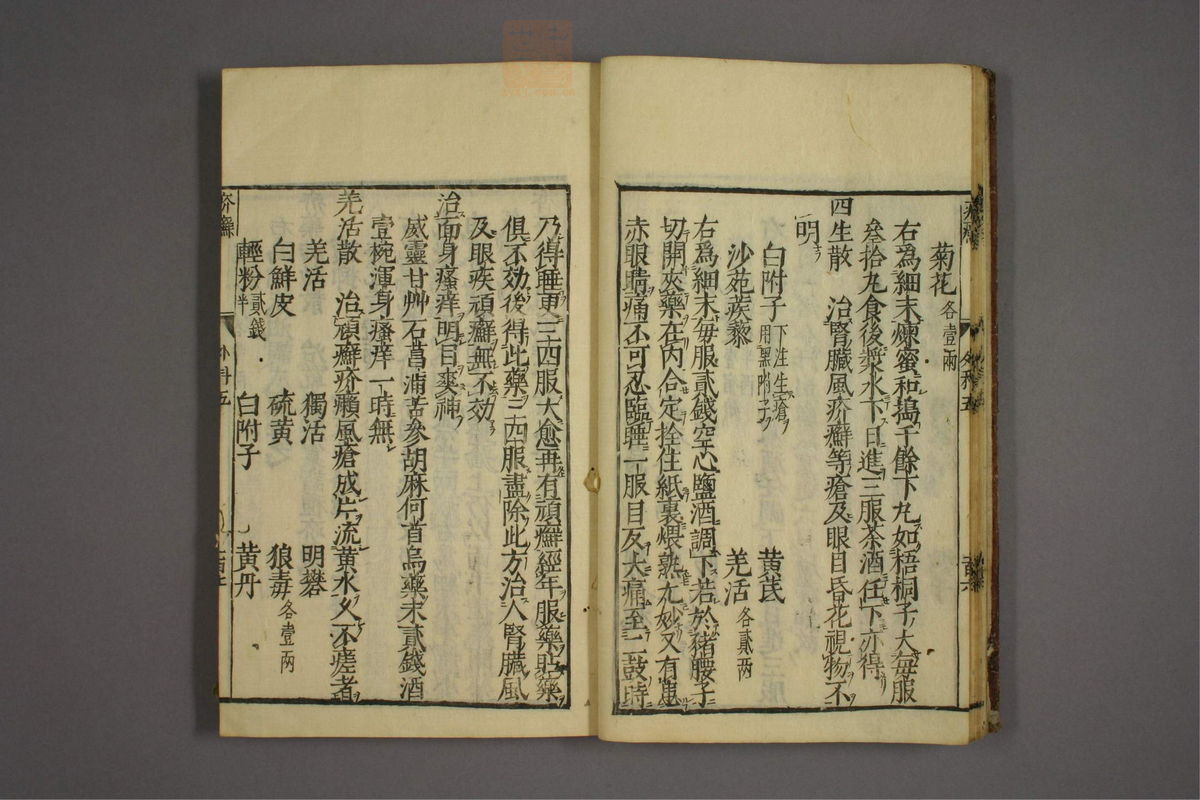 菊花各壹兩
右爲細末煉蜜和搗千餘下丸如梧桐子大每服
叄拾丸食後漿水下日進三服茶酒任下亦得
四生散　治腎臟風疥癬等瘡及眼目昏花視物不
明
白附子下注生瘡用黑附子　黃芪
沙苑蒺藜　羌活各貳兩
右爲細末每服貳錢空心鹽酒調下若於猪腰子
切開夾藥在內合定拴住紙裹煨熟尤妙又有患
赤眼睛痛不可忍臨睡一服目反大痛至二鼓時
乃得睡更三四服大愈再有頑癬經年服藥貼藥
俱不効後得此藥三四服盡除此方治人腎臟風
及眼疾頑癬無不効
治面身瘙痒明目爽神
威靈甘艸石菖蒲苦參胡麻何首烏藥末貳錢酒
壹椀渾身瘙痒一時無
羌活散　治頑癬疥癩風瘡成片流黃水久不瘥者
羌活　獨活　明礬
白鮮皮　硫黃　狼毒各壹兩
輕粉貳錢半　白附子　黃丹
疥癬
外科五